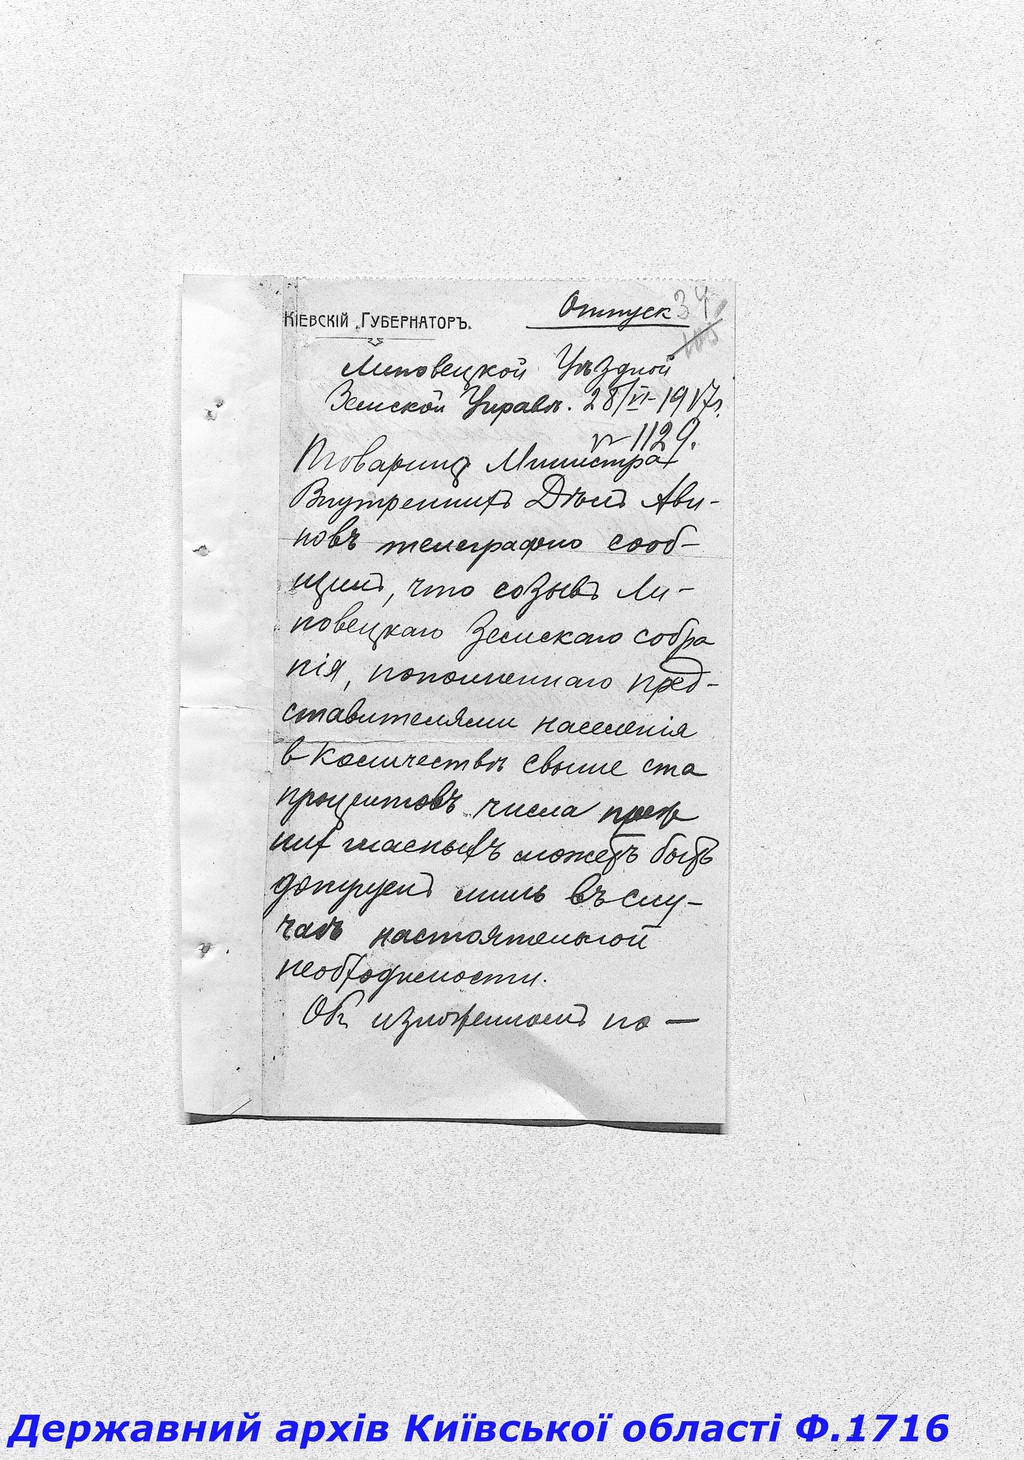 Отпуск 34
КІЕВСКІЙ ГУБЕРНАТОРЪ.
105
Липовецкой Уѣздной
Земской Управѣ. 28/VI-1917г.
№ 1129.
Товарищ Министра
Внутреннихъ Дѣлъ Ави-
новъ телеграфно сооб-
щилъ, что созывъ Ли-
повецкаго Земскаго собра
нія, пополненнаго пред-
ставителями населенія
в количествѣ свыше ста
процентовъ числа преж
них гласныхъ можетъ быть
допущенъ лишь въ слу-
чаѣ настоятельной
необходимости.
Об изложенномъ по-
Державний архів Київської області Ф.1716